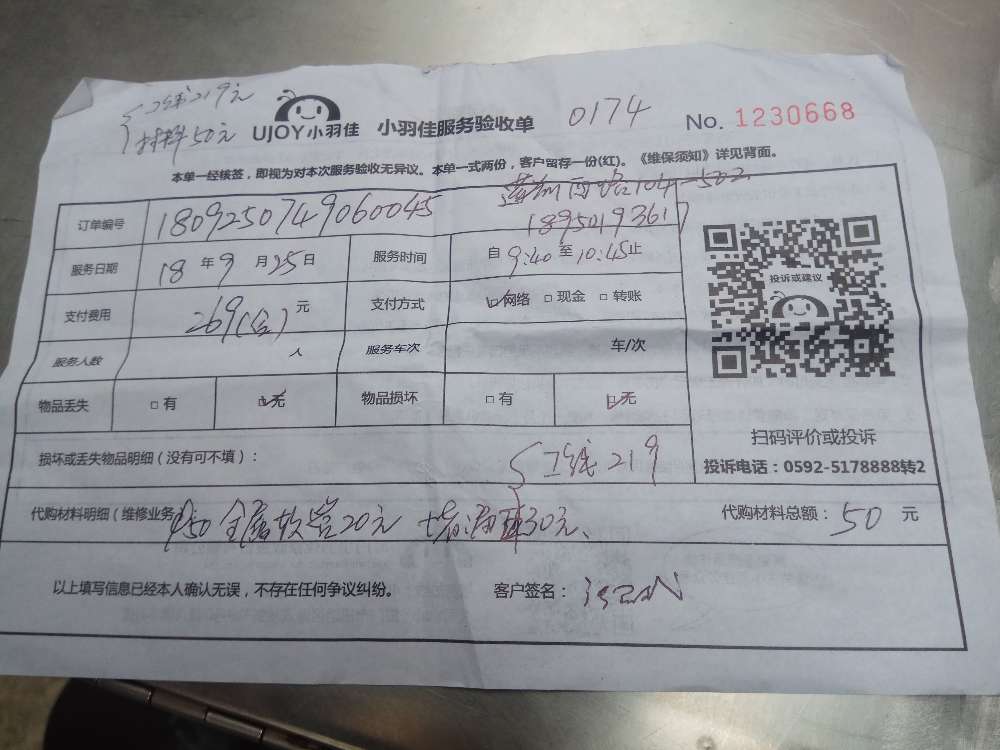 219元
材料50元
UJOY小羽佳 小羽佳服务验收单 0174 No. 1230668
本单一经核签，即视为对本次服务验收无异议。本单一式两份，客户留存一份(红)。《维保须知》详见背面。
104-502
订单编号 1809250749060045 18950193617
服务日期 18年9月25日 服务时间 自9:40至10:45止
支付费用 269(合)元 支付方式 ☑网络 □现金 □转账
服务人数 人 服务车次 车/次
物品丢失 □有 ☑无 物品损坏 □有 ☑无
投诉或建议
扫码评价或投诉
投诉电话：0592-5178888转2
损坏或丢失物品明细（没有可不填）： 219
代购材料明细（维修业务 50金属软管20元 堵漏 30元、 代购材料总额：50元
以上填写信息已经本人确认无误，不存在任何争议纠纷。 客户签名：